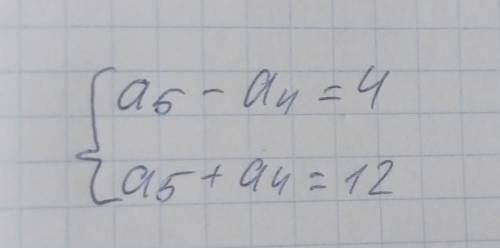 a₅ - a₄ = 4
a₅ + a₄ = 12